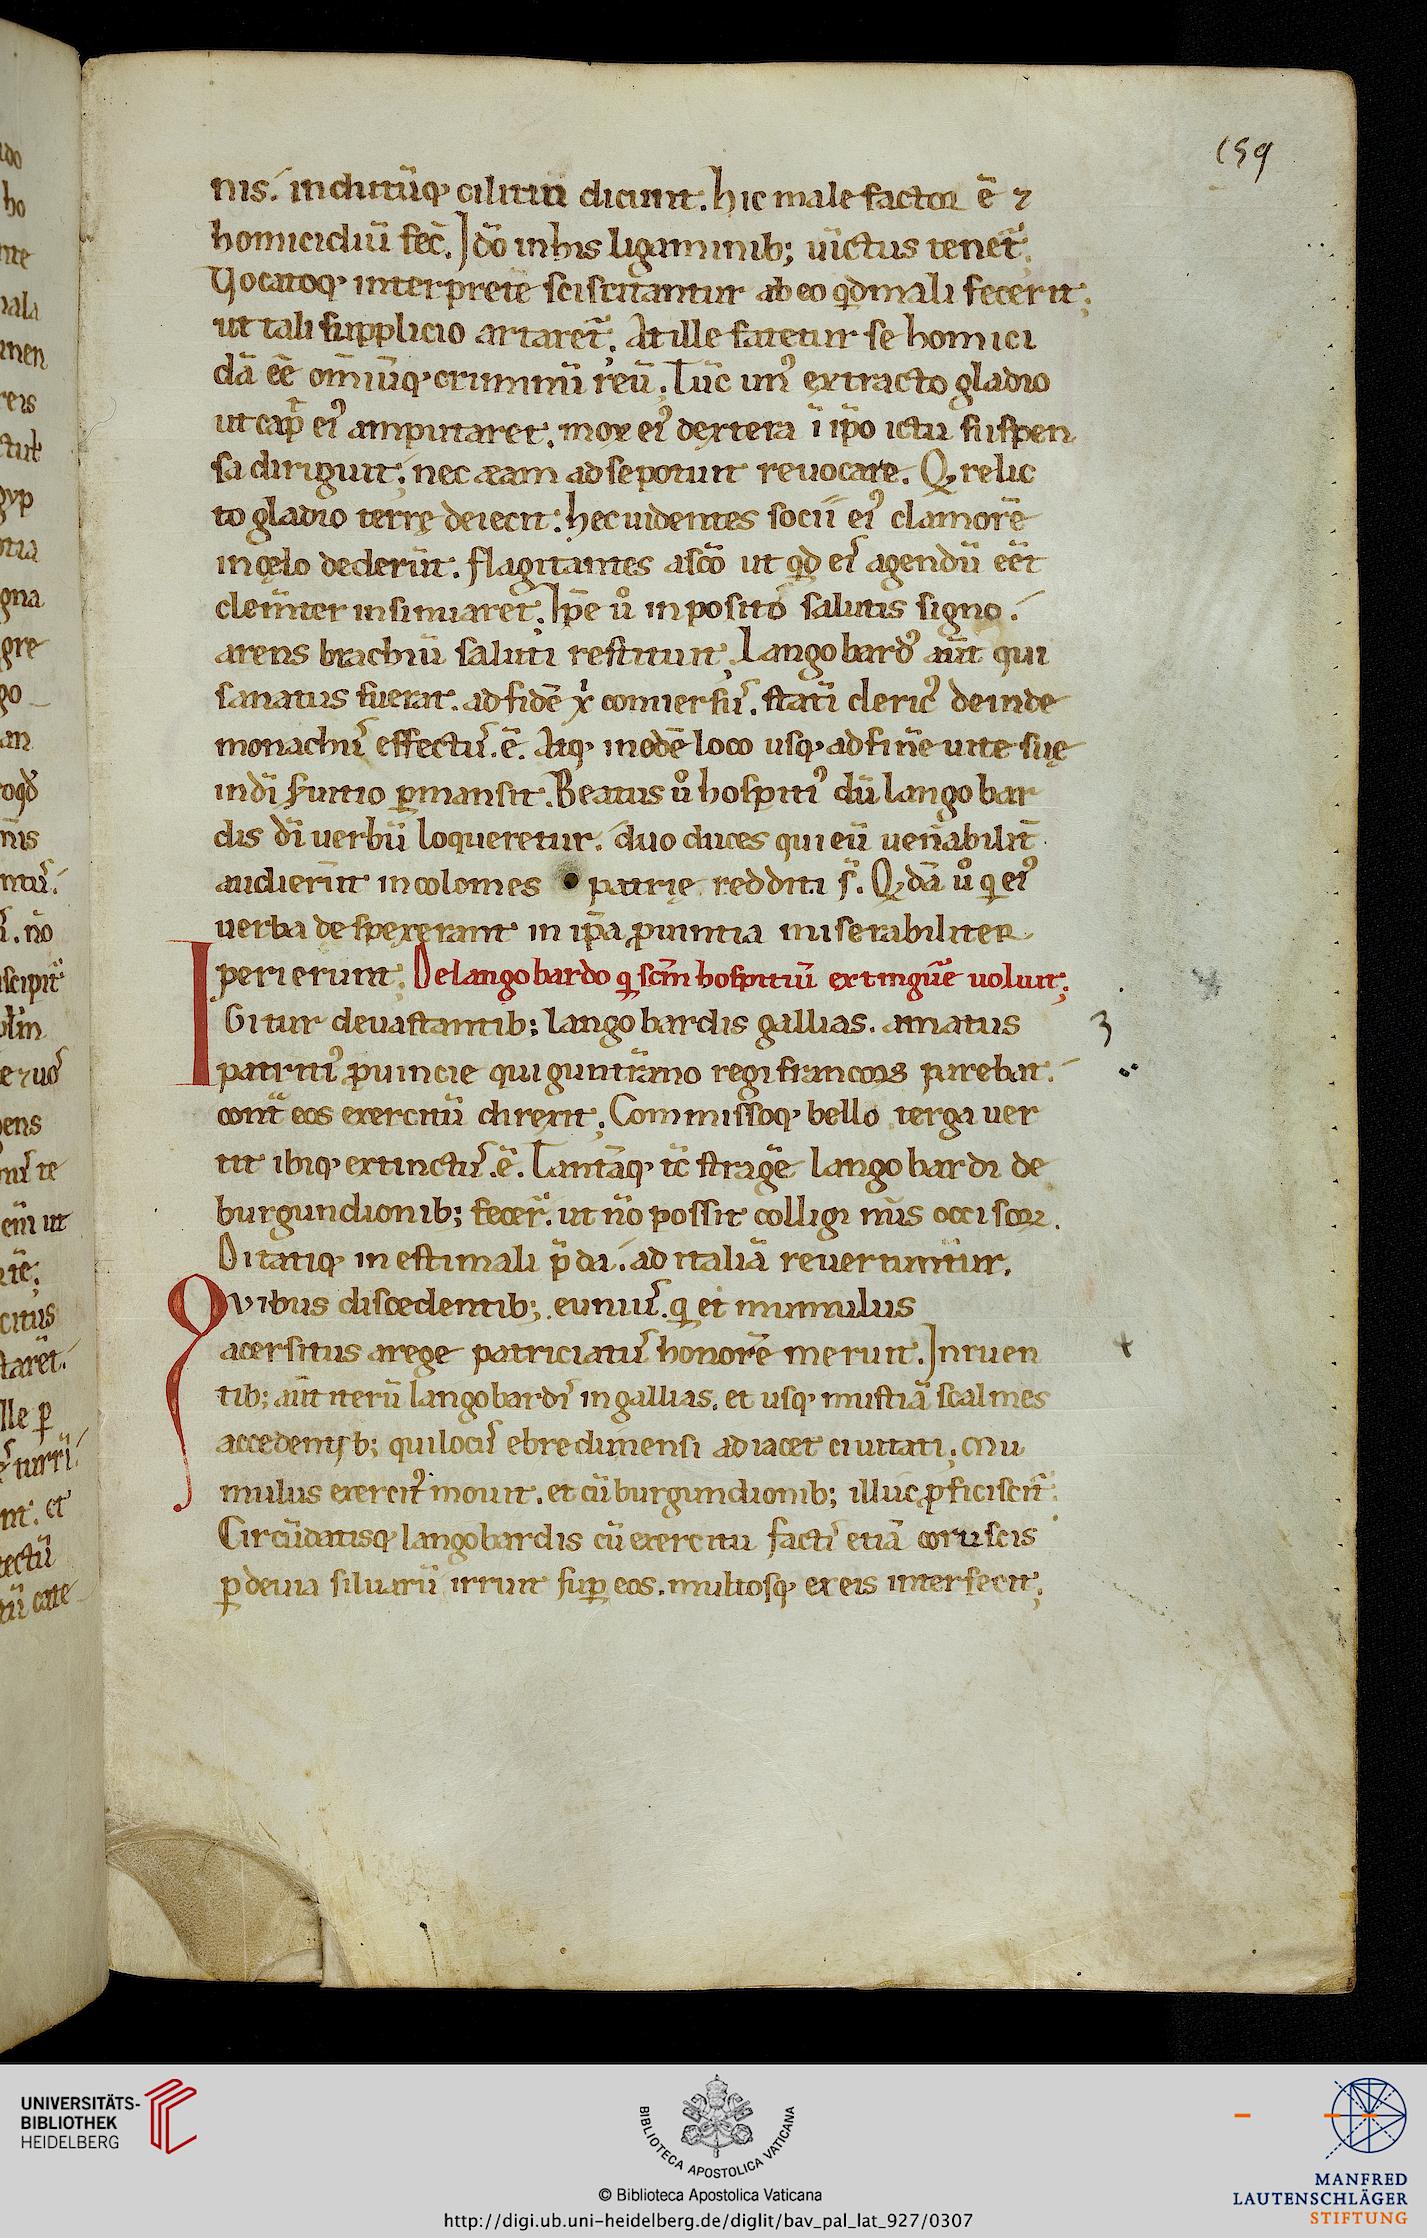 159
nis. indutūq; cilitiū dicunt. hic male factor ē ⁊
homicidiū fec̄. Idō in his ligaminib; uīctus tenet̄.
Vocatoq; interprete sciscitantur ab eo qd mali fecerit;
ut tali supplicio artaret̄. At ille fatetur se homici
dā eē om̄iūq; criminū reū; Tūc un᾽ extracto gladio
ut cap̄ ei᾽ amputaret. mox ei᾽ dextera ī ip̄o ictu suspen
sa diriguit; nec æam ad se potuit reuocare. Q relic
to gladio terrę deiecit. hec uidentes socii ei᾽ clamorē
in cęlo dederūt. flagitantes a sc̄o ut qd ei᾽ agendū eēt
clem̄ter insinuaret. Ip̄e ů inposito salutis signo.
arens brachiū saluti restituit. Langobard᾽ aūt qui
sanatus fuerat. ad fidē xp̄i conuersu᾽. statī cleric᾽ deinde
monachu᾽ effectu᾽. ē. Atq; in eodē loco usq; ad finē uite suę
in dī seruitio ꝑmansit. Beatus ů hospiti᾽ dū lango bar
dis dī uerbū loqueretur. duo duces qui eū uen̄abilit̄
audierūt incolomes patrię redditi s̄. Qdā ů q ei᾽
uerba despexerant in ip̄a ꝓuintia miserabiliter
perierunt; De langobardo q sc̄m hospitiū extinguē uoluit;
Igitur deuastantib; lango bardis gallias. amatus
patriti᾽ ꝓuincie qui guntrāno regi francoꝝ parebat.
cont̄ eos exercitū direxit; Commissoq; bello terga uer
tit ibiq; extinctu᾽. ē. Tantāq; tc̄ stragē langobardi de
burgundionib; fecer̄. ut n̄o possit colligi nūs occisoꝝ.
Ditatiq; inestimali p̄da. ad italiā reuertuntur.
Quibus discedentib;. euniu᾽. q et mumulus
acersitus a rege patriciatu᾽ honorē meruit. Inruen
tib; aūt iterū langobardi᾽ in gallias. et usq; mustiā scalmes
accedentib; qui locu᾽ ebredunensi adiacet ciuitati; Mu
mulus exercit᾽ mouit. et cū burgundionib; illuc ꝓficiscit̄.
Circūdatisq; langobardis cū exercitu facti᾽ etiā coruscis
ꝑ deuia siluarū irruit suꝑ eos. multosq; ex eis interfecit;
UNIVERSITÄTS-
BIBLIOTHEK
HEIDELBERG
BIBLIOTECA APOSTOLICA VATICANA
© Biblioteca Apostolica Vaticana
http://digi.ub.uni-heidelberg.de/diglit/bav_pal_lat_927/0307
MANFRED
LAUTENSCHLÄGER
STIFTUNG